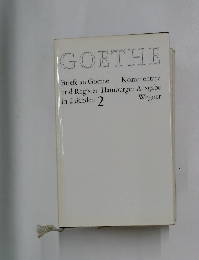 GOETHE
Briefe an Goethe Kommentare
und Register Hamburger Ausgabe
in 2 Bänden 2 Wegner